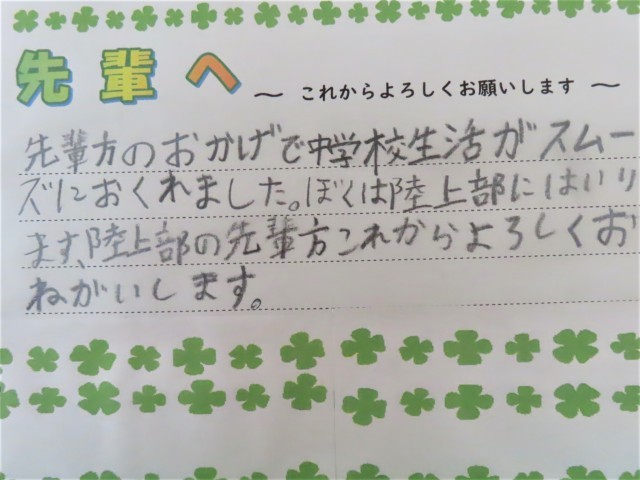 先輩へ ~ これからよろしくお願いします ~
先輩方のおかげで中学校生活がスムー
ズにおくれました。ぼくは陸上部にはいり
ます、陸上部の先輩方これからよろしくお
ねがいします。